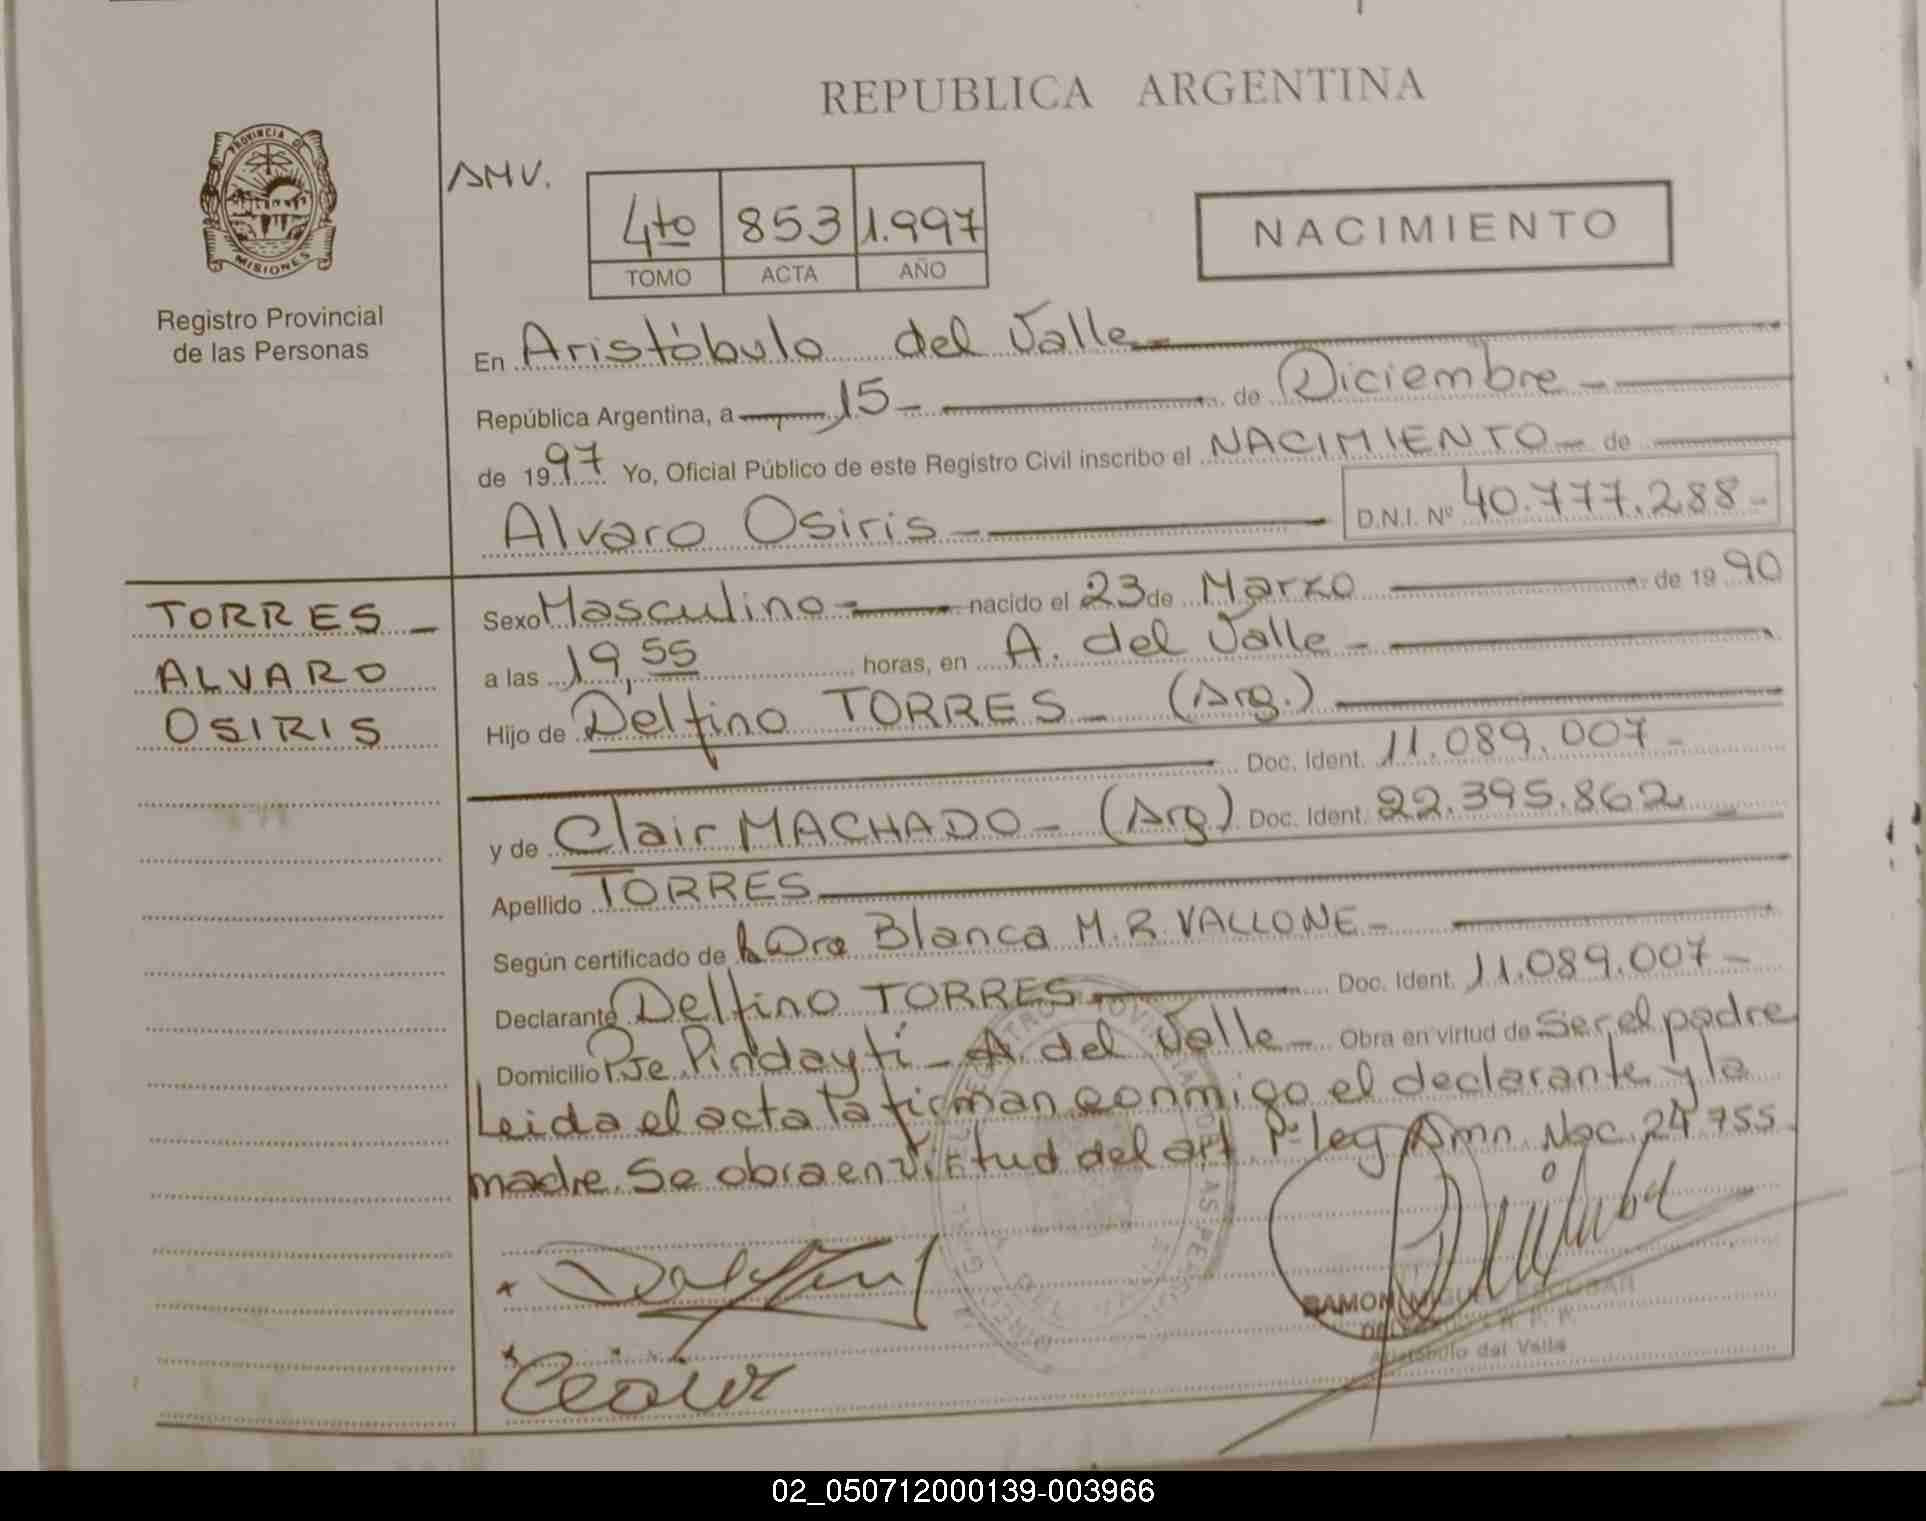 REPUBLICA ARGENTINA
PROVINCIA DE
MISIONES
Registro Provincial
de las Personas
AMV.
4to 853 1.997
TOMO ACTA AÑO
NACIMIENTO
En Aristóbulo del Valle
República Argentina, a 15 de Diciembre
de 1997 Yo, Oficial Público de este Registro Civil inscribo el NACIMIENTO de
Alvaro Osiris D.N.I. Nº 40.777.288
TORRES
ALVARO
OSIRIS
Sexo Masculino nacido el 23 de Marzo de 1990
a las 19,55 horas, en A. del Valle
Hijo de Delfino TORRES (Arg.)
Doc. Ident. 11.089.007
y de Clair MACHADO (Arg) Doc. Ident. 22.395.862
Apellido TORRES
Según certificado de Dra Blanca M. R. VALLONE
Declarante Delfino TORRES Doc. Ident. 11.089.007
Domicilio Pje. Pindaytí A. del Valle Obra en virtud de Ser el padre
Leida el acta la firman conmigo el declarante y la
madre. Se obra en virtud del art 1º ley Amn. Nac. 24755
RAMON
Aristóbulo del Valle
02_050712000139-003966